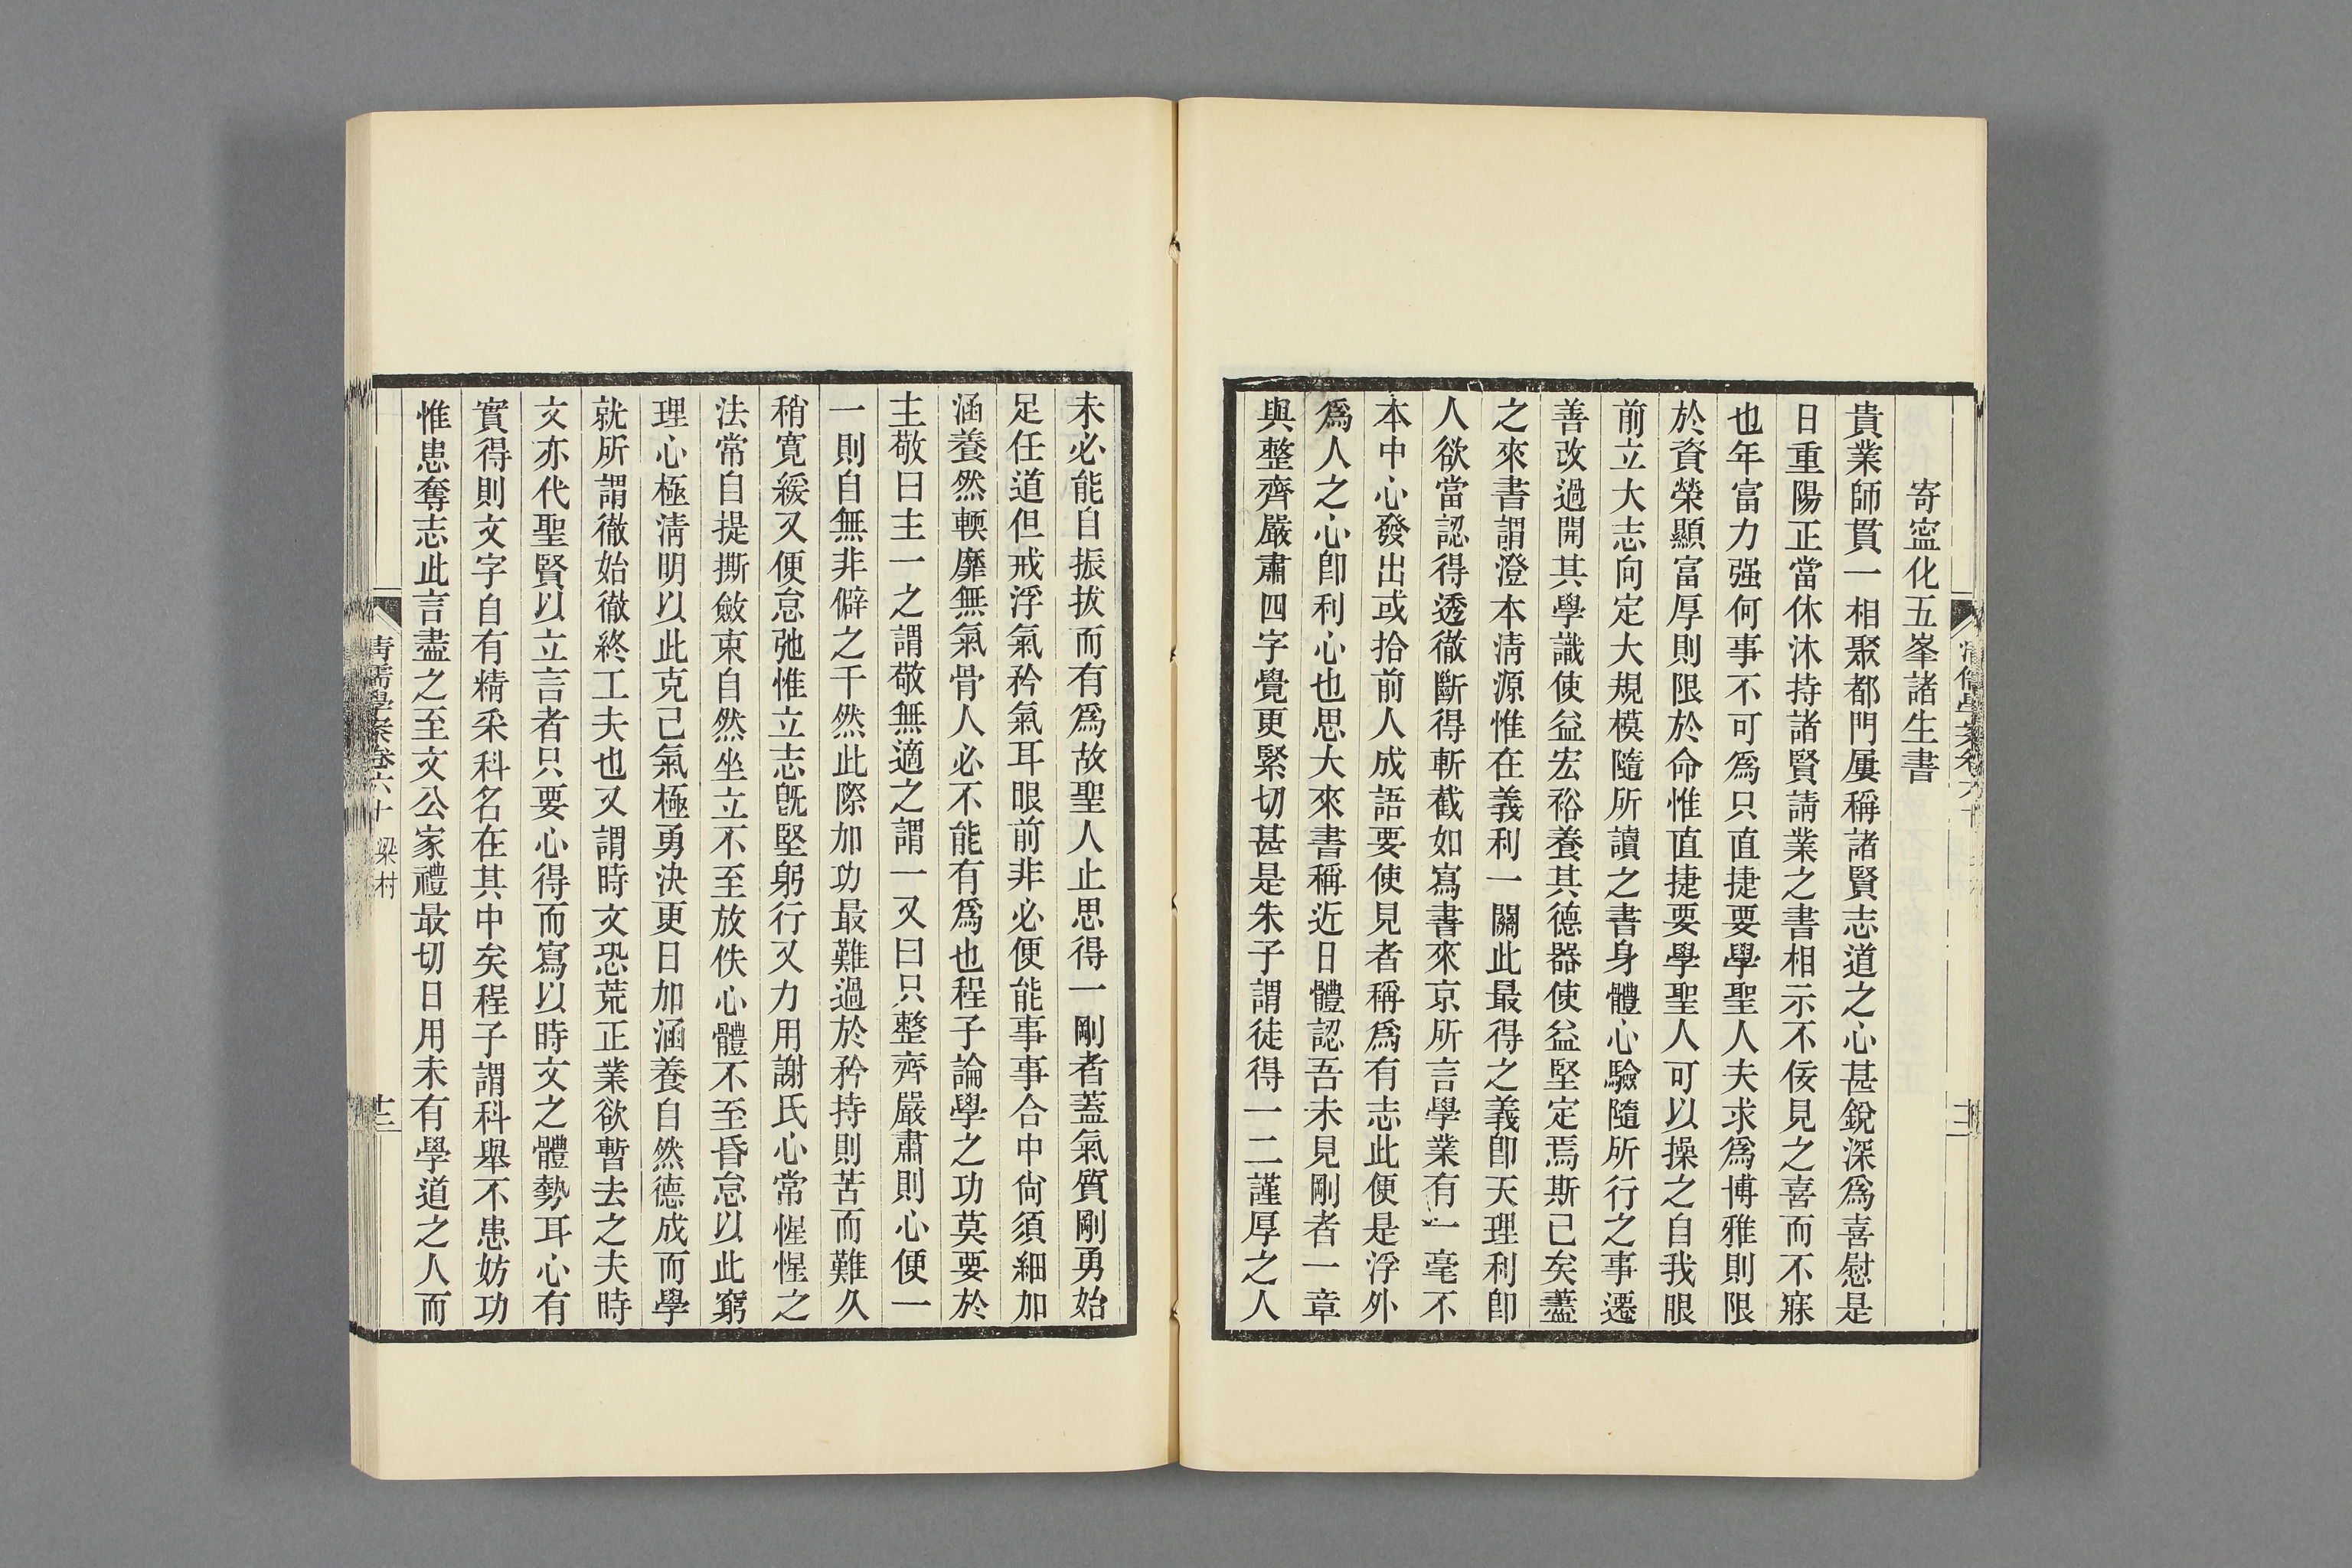 寄寍化五峯諸生書
貴業師貫一相聚都門屢稱諸賢志道之心甚銳深爲喜慰是
日重陽正當休沐持諸賢請業之書相示不佞見之喜而不寐
也年富力强何事不可爲只直捷要學聖人夫求爲博雅則限
於資榮顯富厚則限於命惟直捷要學聖人可以操之自我眼
前立大志向定大規模隨所讀之書身體心驗隨所行之事遷
善改過開其學識使益宏裕養其德器使益堅定焉斯已矣蓋
之來書謂澄本清源惟在義利一關此最得之義卽天理利卽
人欲當認得透徹斷得斬截如寫書來京所言學業有一毫不
本中心發出或拾前人成語要使見者稱爲有志此便是浮外
爲人之心卽利心也思大來書稱近日體認吾未見剛者一章
與整齊嚴肅四字覺更緊切甚是朱子謂徒得一二謹厚之人
未必能自振拔而有爲故聖人止思得一剛者蓋氣質剛勇始
足任道但戒浮氣矜氣耳眼前非必便能事事合中尙須細加
涵養然輭靡無氣骨人必不能有爲也程子論學之功莫要於
主敬曰主一之謂敬無適之謂一又曰只整齊嚴肅則心便一
一則自無非僻之干然此際加功最難過於矜持則苦而難久
稍寬緩又便怠弛惟立志旣堅躬行又力用謝氏心常惺惺之
法常自提撕斂束自然坐立不至放佚心體不至昏怠以此窮
理心極淸明以此克己氣極勇決更日加涵養自然德成而學
就所謂徹始徹終工夫也又謂時文恐荒正業欲暫去之夫時
文亦代聖賢以立言者只要心得而寫以時文之體勢耳心有
實得則文字自有精采科名在其中矣程子謂科舉不患妨功
惟患奪志此言盡之至文公家禮最切日用未有學道之人而
清儒學案卷六十 梁村 十二